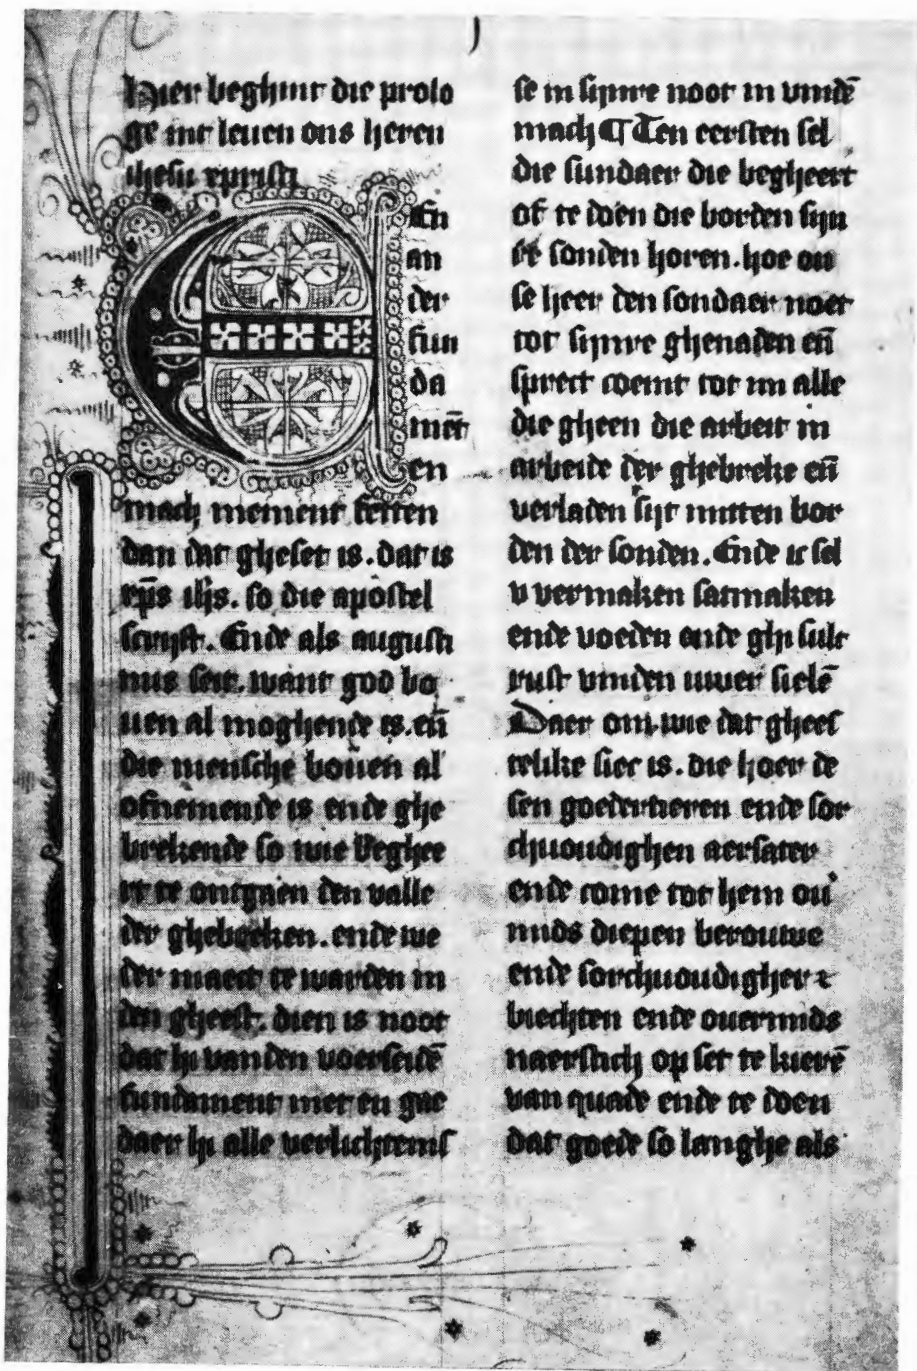 Hier beghint die prolo
ge int leuen ons heren
ihesu xpristi
En
an
der
fun
da
mēt
en
mach niement setten
dan dat gheset is. dat is
xp̄s ih̄s. so die apostel
scrijft. Ende als augusti
nus seit. want god bo
uen al moghende is. eñ
die mensche bouen al
ofnemende is ende ghe
brekende so wie beghee
rt te ontgaen den valle
der ghebreken. ende we
der maect te warden in
den gheest. dien is noot
dat hi vanden voerseidē
fundament niet en gae
daer hi alle verlichtenis
se in sijnre noot in vindē
mach ¶ Ten eersten sel
die sundaer die begheert
of te doen die borden sijn
re sonden horen. hoe on
se heer den sondaer noet
tot sijnre ghenaden eñ
sprect coemt tot mi alle
die gheen die arbeit in
arbeide der ghebreke eñ
verladen sijt mitten bor
den der sonden. Ende ic sel
v vermaken satmaken
ende voeden ende ghi sult
rust vinden uwer sielē
Daer om wie dat ghees
telike siec is. die hoer de
sen goedertieren ende sor
chuoudighen aersater
ende come tot hem ou
mids diepen berouwe
ende sorchuoudigher
biechten ende ouermids
naerstich op set te kierē
van quade ende te doen
dat goede so langhe als